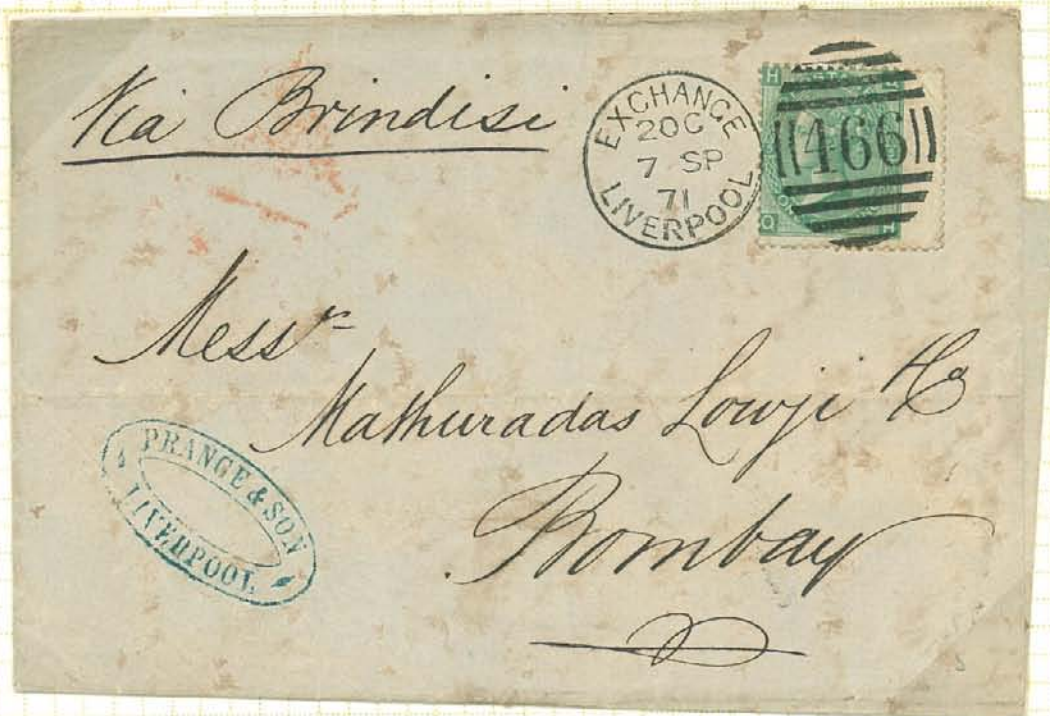 Via Brindisi
EXCHANGE
20C
7 SP
71
LIVERPOOL
466
H
Q H
Messrs
Mathuradas Lowji & Co
Bombay
PRANGE & SON
LIVERPOOL